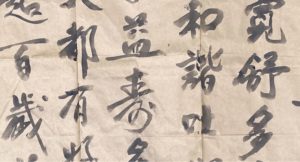 寬舒多
和諧吐
益壽多
都有好
百歲